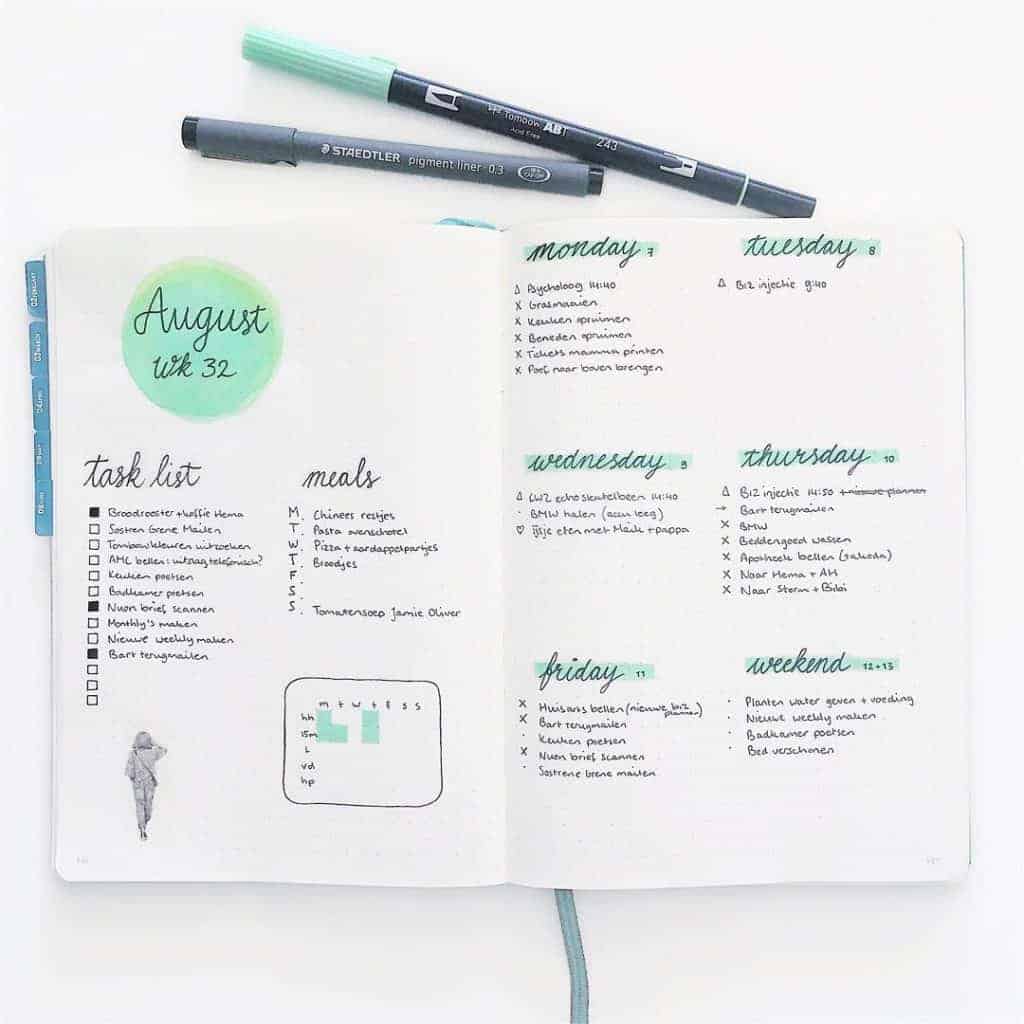 Tombow
ABT
Acid Free
243
STAEDTLER pigment liner 0.3
August
Wk 32
task list
Broodrooster + koffie Hema
Sostren Grene Mailen
Tombow kleuren uitzoeken
AMC bellen: uitslag telefonisch?
Keuken poetsen
Badkamer poetsen
Nuon brief scannen
Monthly's maken
Nieuwe weekly maken
Bart terugmailen
meals
M. Chinees restjes
T. Pasta ovenschotel
W. Pizza + aardappelpartjes
T. Broodjes
F.
S.
S. Tomatensoep Jamie Oliver
m t w t f s s
hh
15m
L
vd
hp
monday 7
Δ Psycholoog 14:40
X Grasmaaien
X Keuken opruimen
X Beneden opruimen
X Tickets mamma printen
X Poef naar boven brengen
tuesday 8
Δ B12 injectie 9:40
wednesday 9
Δ CWZ echo sleutelbeen 14:40
· BMW halen (accu leeg)
♡ ijsje eten met Maik + pappa
thursday 10
Δ B12 injectie 14:50 nieuwe plannen
→ Bart terugmailen
X BMW
X Beddengoed wassen
X Apotheek bellen (takeda)
X Naar Hema + AH
X Naar Storm + Bibi
friday 11
X Huisarts bellen (nieuwe B12 plannen)
X Bart terugmailen
· Keuken poetsen
X Nuon brief scannen
· Sostrene Grene mailen
weekend 12+13
· Planten water geven + voeding
· Nieuwe weekly maken
· Badkamer poetsen
· Bed verschonen